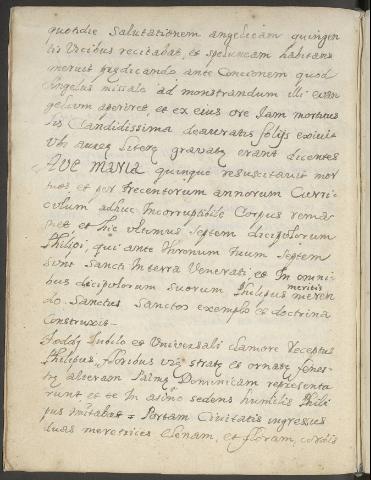 quotidie Salutationem angelicam quingen
tis Vicibus recitabat, et speluncam habitans
meruit prędicando, ante Concionem quod
Angelus missale ad monstrandum illi evan
gelium aperiret, et ex eius ore Iam mortuus
Candidissima deauratis folijs exivit
Ubi aureę literę gravatę erant dicentes
AVE MARIA quinque resuscitavit mor
tuos, et per trecentorum annorum Curri
culum adhuc Incorruptibile Corpus rema
net, et hic ultimus Septem discipolorum
Philipi, qui ante thronum tuum Septem
sunt Sancti In terra Venerati, et In omni
bus discipolorum suorum Philipus meritis meren
do Sanctus Sanctos exemplo et doctrina
Construxit.
Iubilo et Universali clamore receptus
Philipus, floribus vię stratę et ornatę fenes-
trę alteram Palmę Dominicam representa
runt et te In asino sedens humilis Phili
pus imitabat = Portam Civitatis ingressus
duas meretrices Elenam, et floram, cordis